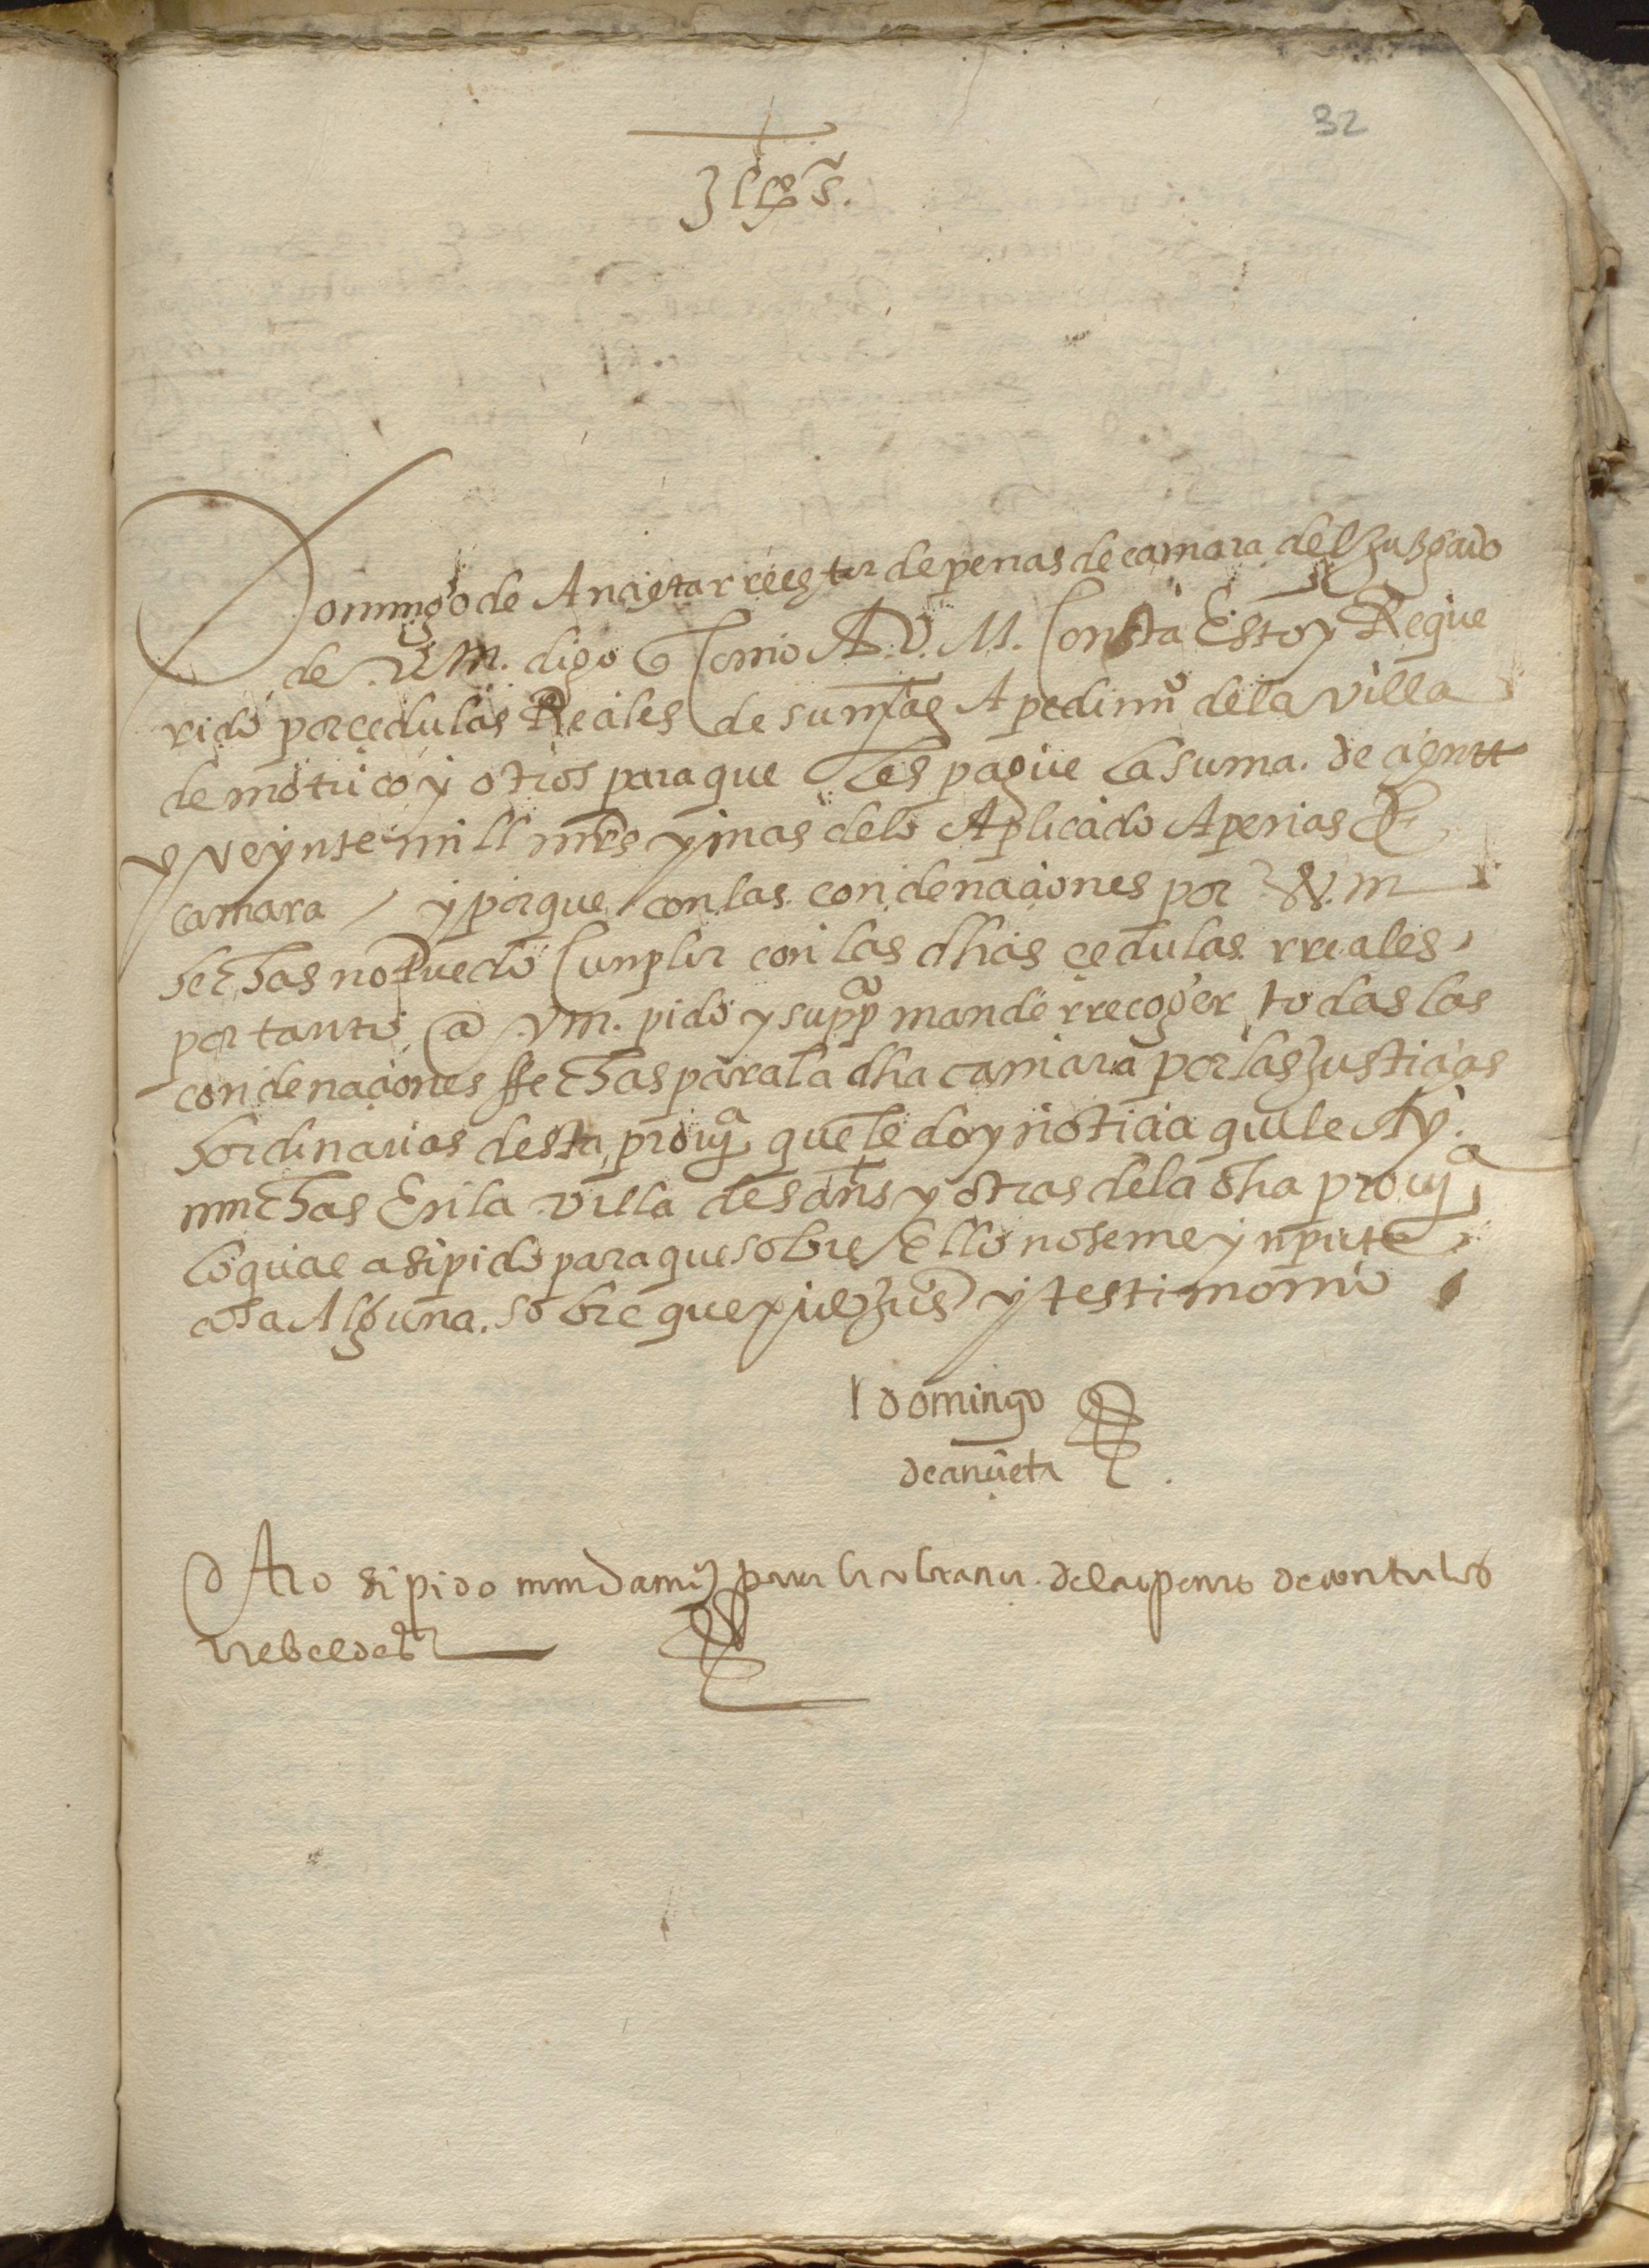 32
Ylle s.
Domingo de Anueta rreceptor de penas de camara del Juzgado
de V.M. digo q Como A. V. M. Consta Estoy Reque
rido por cedulas Reales de su mag A pedimi° de la villa
de motrico y otros para que les pague la suma. de çientt
y veynte mill mrs y mas de lo Aplicado A penas de
camara / y porque con las condenaçiones por V. m
hechas no Puedo Cumplir con las dhas cedulas rreales,
por tanto, a V m. pido y supp^co mande rrecoger todas las
condenaçiones ffechas para la dha camara por las Justiçias
hordinarias desta prouiª que le doy notiçia que le Ay.
muchas En la villa de sant s y otras de la dha prouiª
lo qual asi pido para que sobre Ello no se me ynpute
cosa Alguna. sobre que pido Jus^a y testimonio
Domingo
de anueta
Otro si pido mandami° para la cobrança. de las penas de contules
rrebeldes